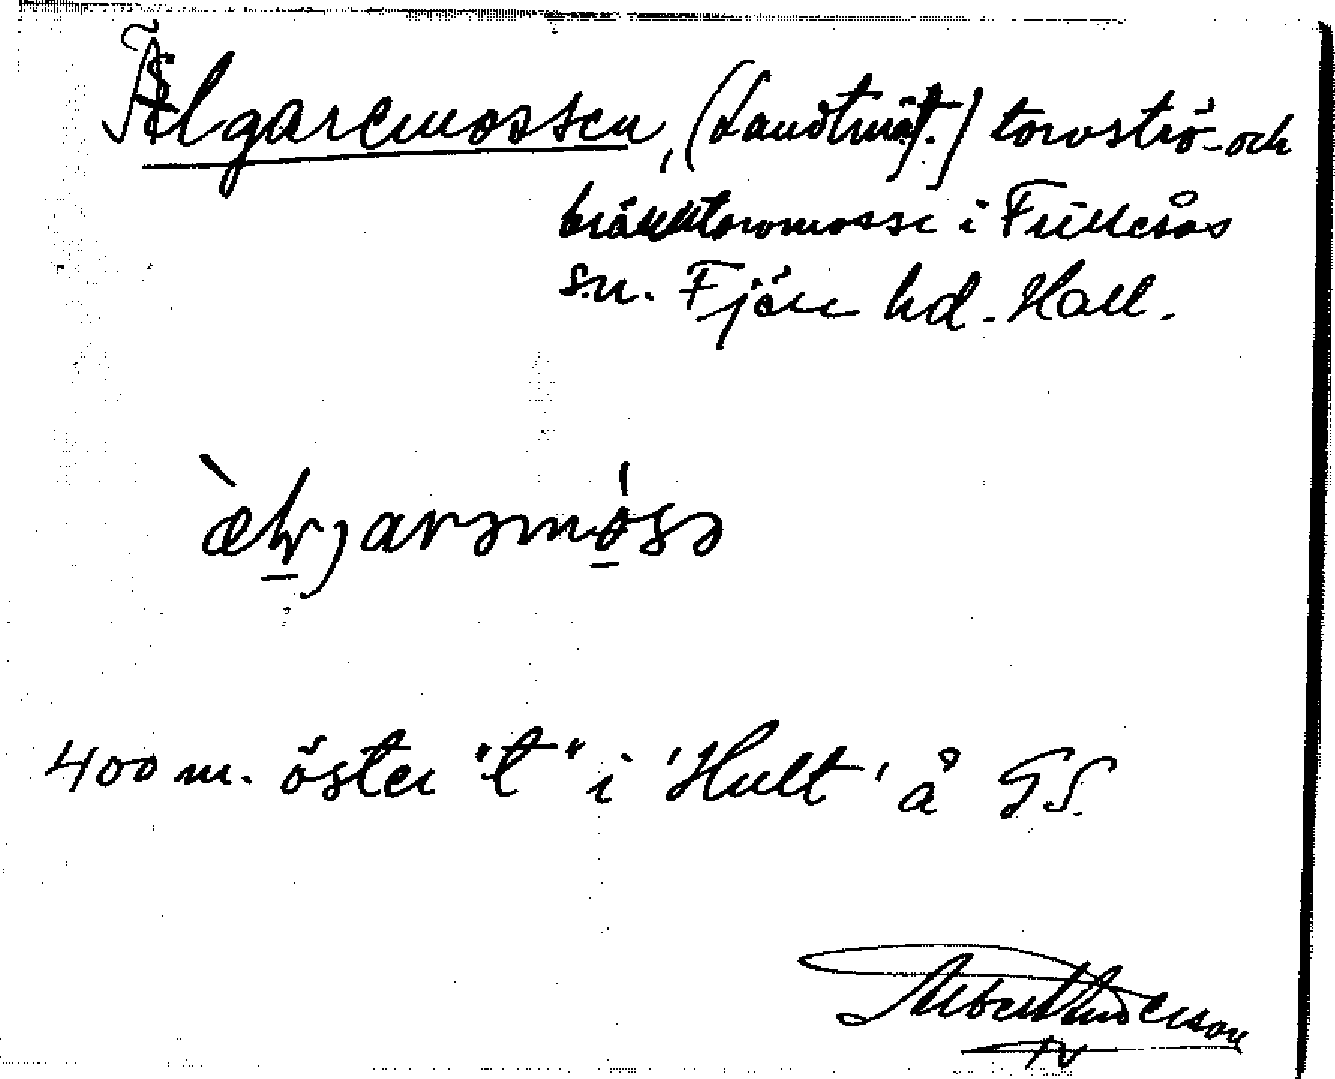 Älgaremossen, (Landtmät.) torvströ- och
bränntorvmosse i Fillerås
sn. Fjäre hd. Hall.
400 m. öster "t" i 'Hult' å GS.
Albert Anderson